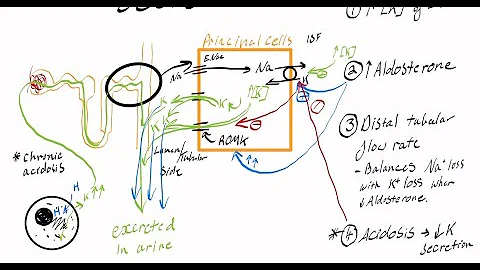 ① ↑ [K]
Principal cells
ISF
ENac
Na
Na
↑[K]
K
② ↑ Aldosterone
K
K
↑[K]
K
ROMK
Lumen/Tubular
Side
* chronic
acidosis
③ Distal tubular
flow rate
- Balances Na⁺ loss
with K⁺ loss when
↓ Aldosterone.
H
K ↑↑
H⁺K
K
excreted
in urine
*④ Acidosis → ↓ K
secretion